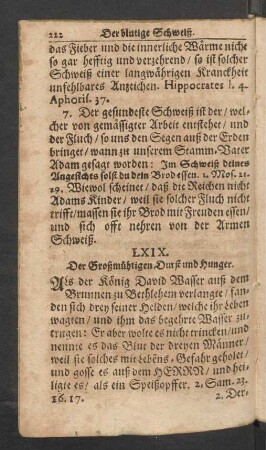 222 Der blutige Schweiß.
das Fieber und die innerliche Wärme nicht
so gar hefftig und verzehrend / so ist solcher
Schweiß einer langwährigen Kranckheit
unfehlbares Anzeichen. Hippocrates l. 4.
Aphoril. 37.
7. Der gesundeste Schweiß ist der / wel-
cher von gemässiger Arbeit entstehet / und
der Fluch / so uns den Segen auß der Erden
bringet / wann zu unserem Stamm-Vater
Adam gesagt worden: Im Schweiß deines
Angesichts solst du dein Brod essen. 1. Mos. 21.
29. Wiewol scheinet / daß die Reichen nicht
Adams Kinder / weil sie solcher Fluch nicht
trifft / massen sie ihr Brod mit Freuden essen /
und sich offt nehren von der Armen
Schweiß.
LXIX.
Der Großmühtigen Durst und Hunger.
Als der König David Wasser auß dem
Brunnen zu Bethlehem verlangte / fan-
den sich drey seiner Helden / welche ihr Leben
wagten / und ihm das begehrte Wasser zu-
trugen: Er aber wolte es nicht trincken / und
nennte es das Blut der dreyen Männer /
weil sie solches mit Lebens-Gefahr geholet /
und gosse es auß dem HERRN / und hei-
ligte es / als ein Speißopffer. 2. Sam. 23.
16. 17.
2. Der-